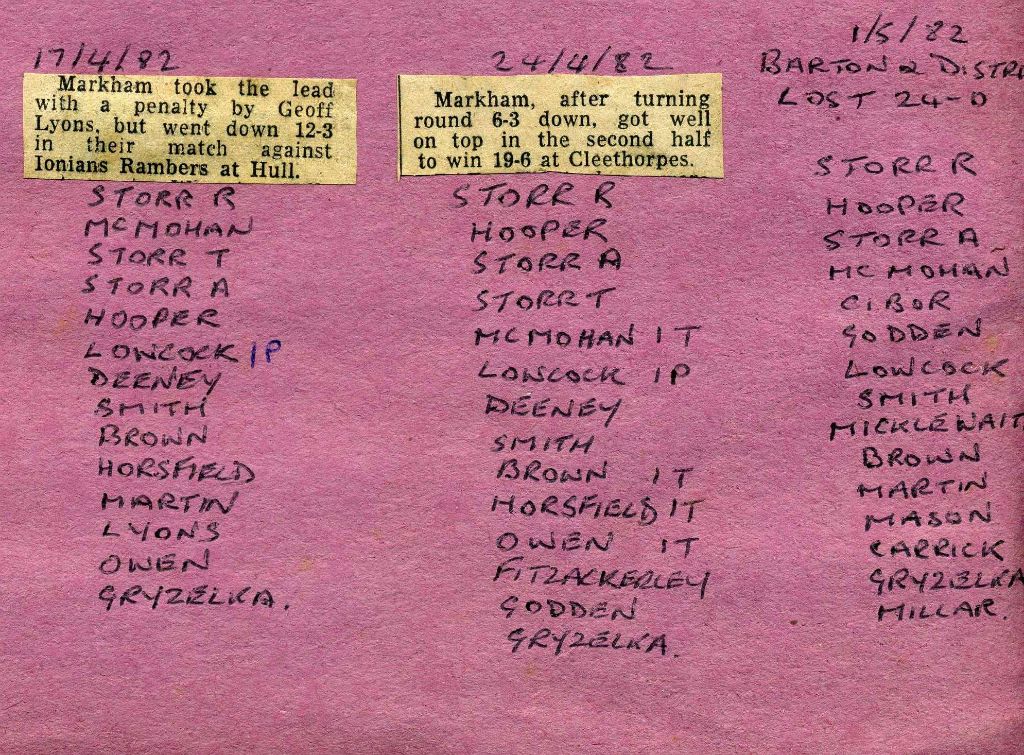 17/4/82
Markham took the lead
with a penalty by Geoff
Lyons, but went down 12-3
in their match against
Ionians Rambers at Hull.
STORR R
MCMOHAN
STORR T
STORR A
HOOPER
LOWCOCK 1P
DEENEY
SMITH
BROWN
HORSFIELD
MARTIN
LYONS
OWEN
GRYZELKA.
24/4/82
Markham, after turning
round 6-3 down, got well
on top in the second half
to win 19-6 at Cleethorpes.
STORR R
HOOPER
STORR A
STORR T
MCMOHAN 1T
LOWCOCK 1P
DEENEY
SMITH
BROWN 1T
HORSFIELD 1T
OWEN 1T
FITZACKERLEY
GODDEN
GRYZELKA.
1/5/82
BARTON & DISTRI
LOST 24-0
STORR R
HOOPER
STORR A
MCMOHAN
CIBOR
GODDEN
LOWCOCK
SMITH
MICKLEWAIT
BROWN
MARTIN
MASON
CARRICK
GRYZELKA
MILLAR.